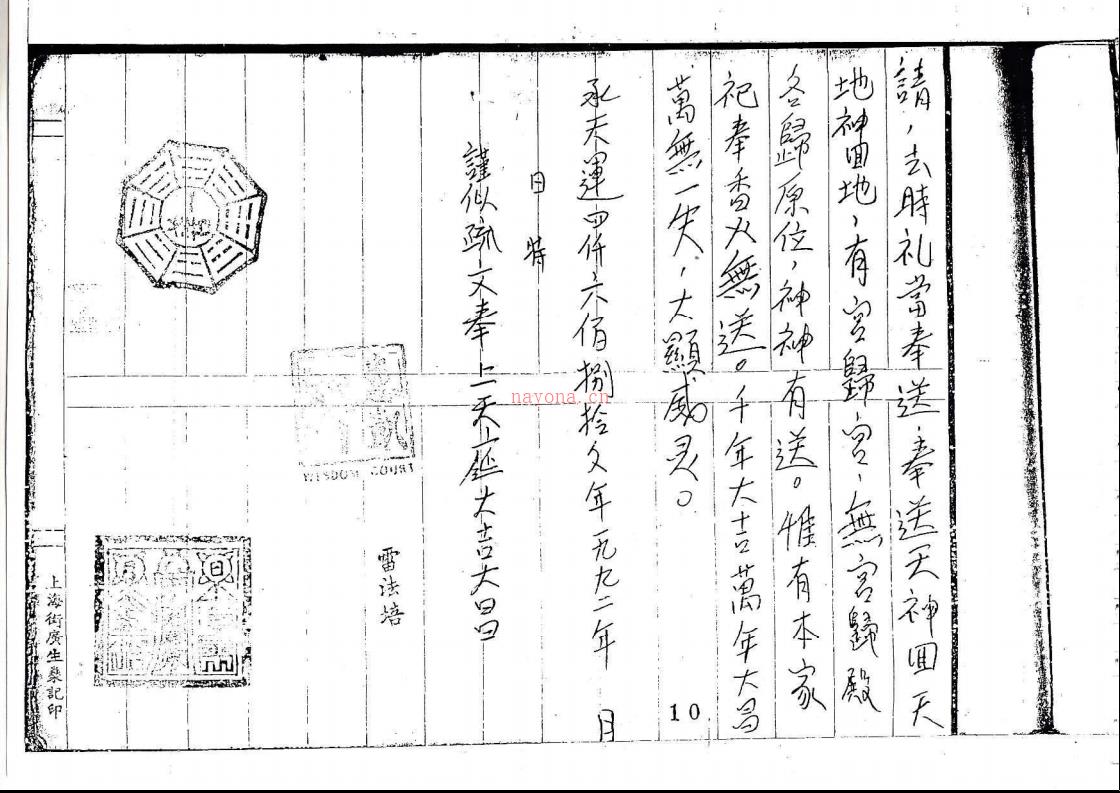 請，去時礼當奉送，奉送天神回天
地神回地，有宮歸宮，無宮歸殿
各歸原位，神神有送。惟有本家
祀奉香火無送。千年大吉萬年大昌
萬無一失，大顯威灵。
承天運四仟六佰捌拾文年一九九二年 月
日 特
謹似疏文奉上天庭大吉大昌
雷法培
WISDOM COURT
上海街廣生棧記印
10
nayona.cn